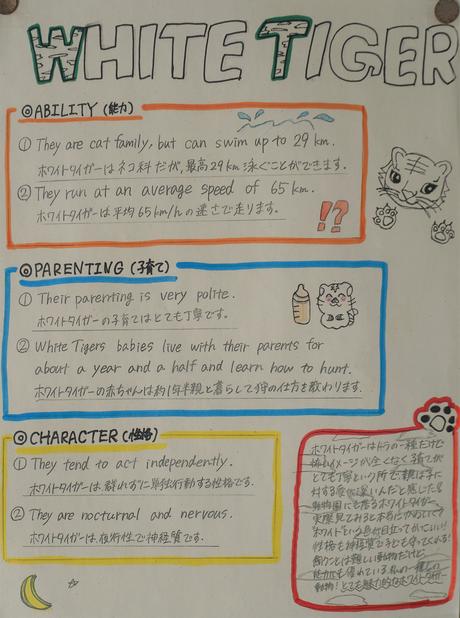 WHITE TIGER
◎ABILITY (能力)
① They are cat family, but can swim up to 29 km.
ホワイトタイガーはネコ科だが、最高29km泳ぐことができます.
② They run at an average speed of 65 km.
ホワイトタイガーは平均65km/hの速さで走ります.
!?
◎PARENTING (子育て)
① Their parenting is very polite.
ホワイトタイガーの子育てはとても丁寧です。
② White Tigers babies live with their parents for
about a year and a half and learn how to hunt.
ホワイトタイガーの赤ちゃんは約1年半親と暮らして狩の仕方を教わります.
◎CHARACTER (性格)
① They tend to act independently.
ホワイトタイガーは、群れずに単独行動する性格です.
② They are nocturnal and nervous.
ホワイトタイガーは、夜行性で神経質です.
ホワイトタイガーはトラの一種だけど
怖いイメージが全くなく子育てが
とても丁寧という所も親は子に
対する愛が
動物園にも居るホワイトタイガー
実際見てみると本当に
ホワイトという色が目立ってかっこいい!
性格も神経質で子どもを守ってくれる!
飼うことは難しい動物だけど
能力も優れている私の一推しの
動物!とても魅力的なホワイトタイガー